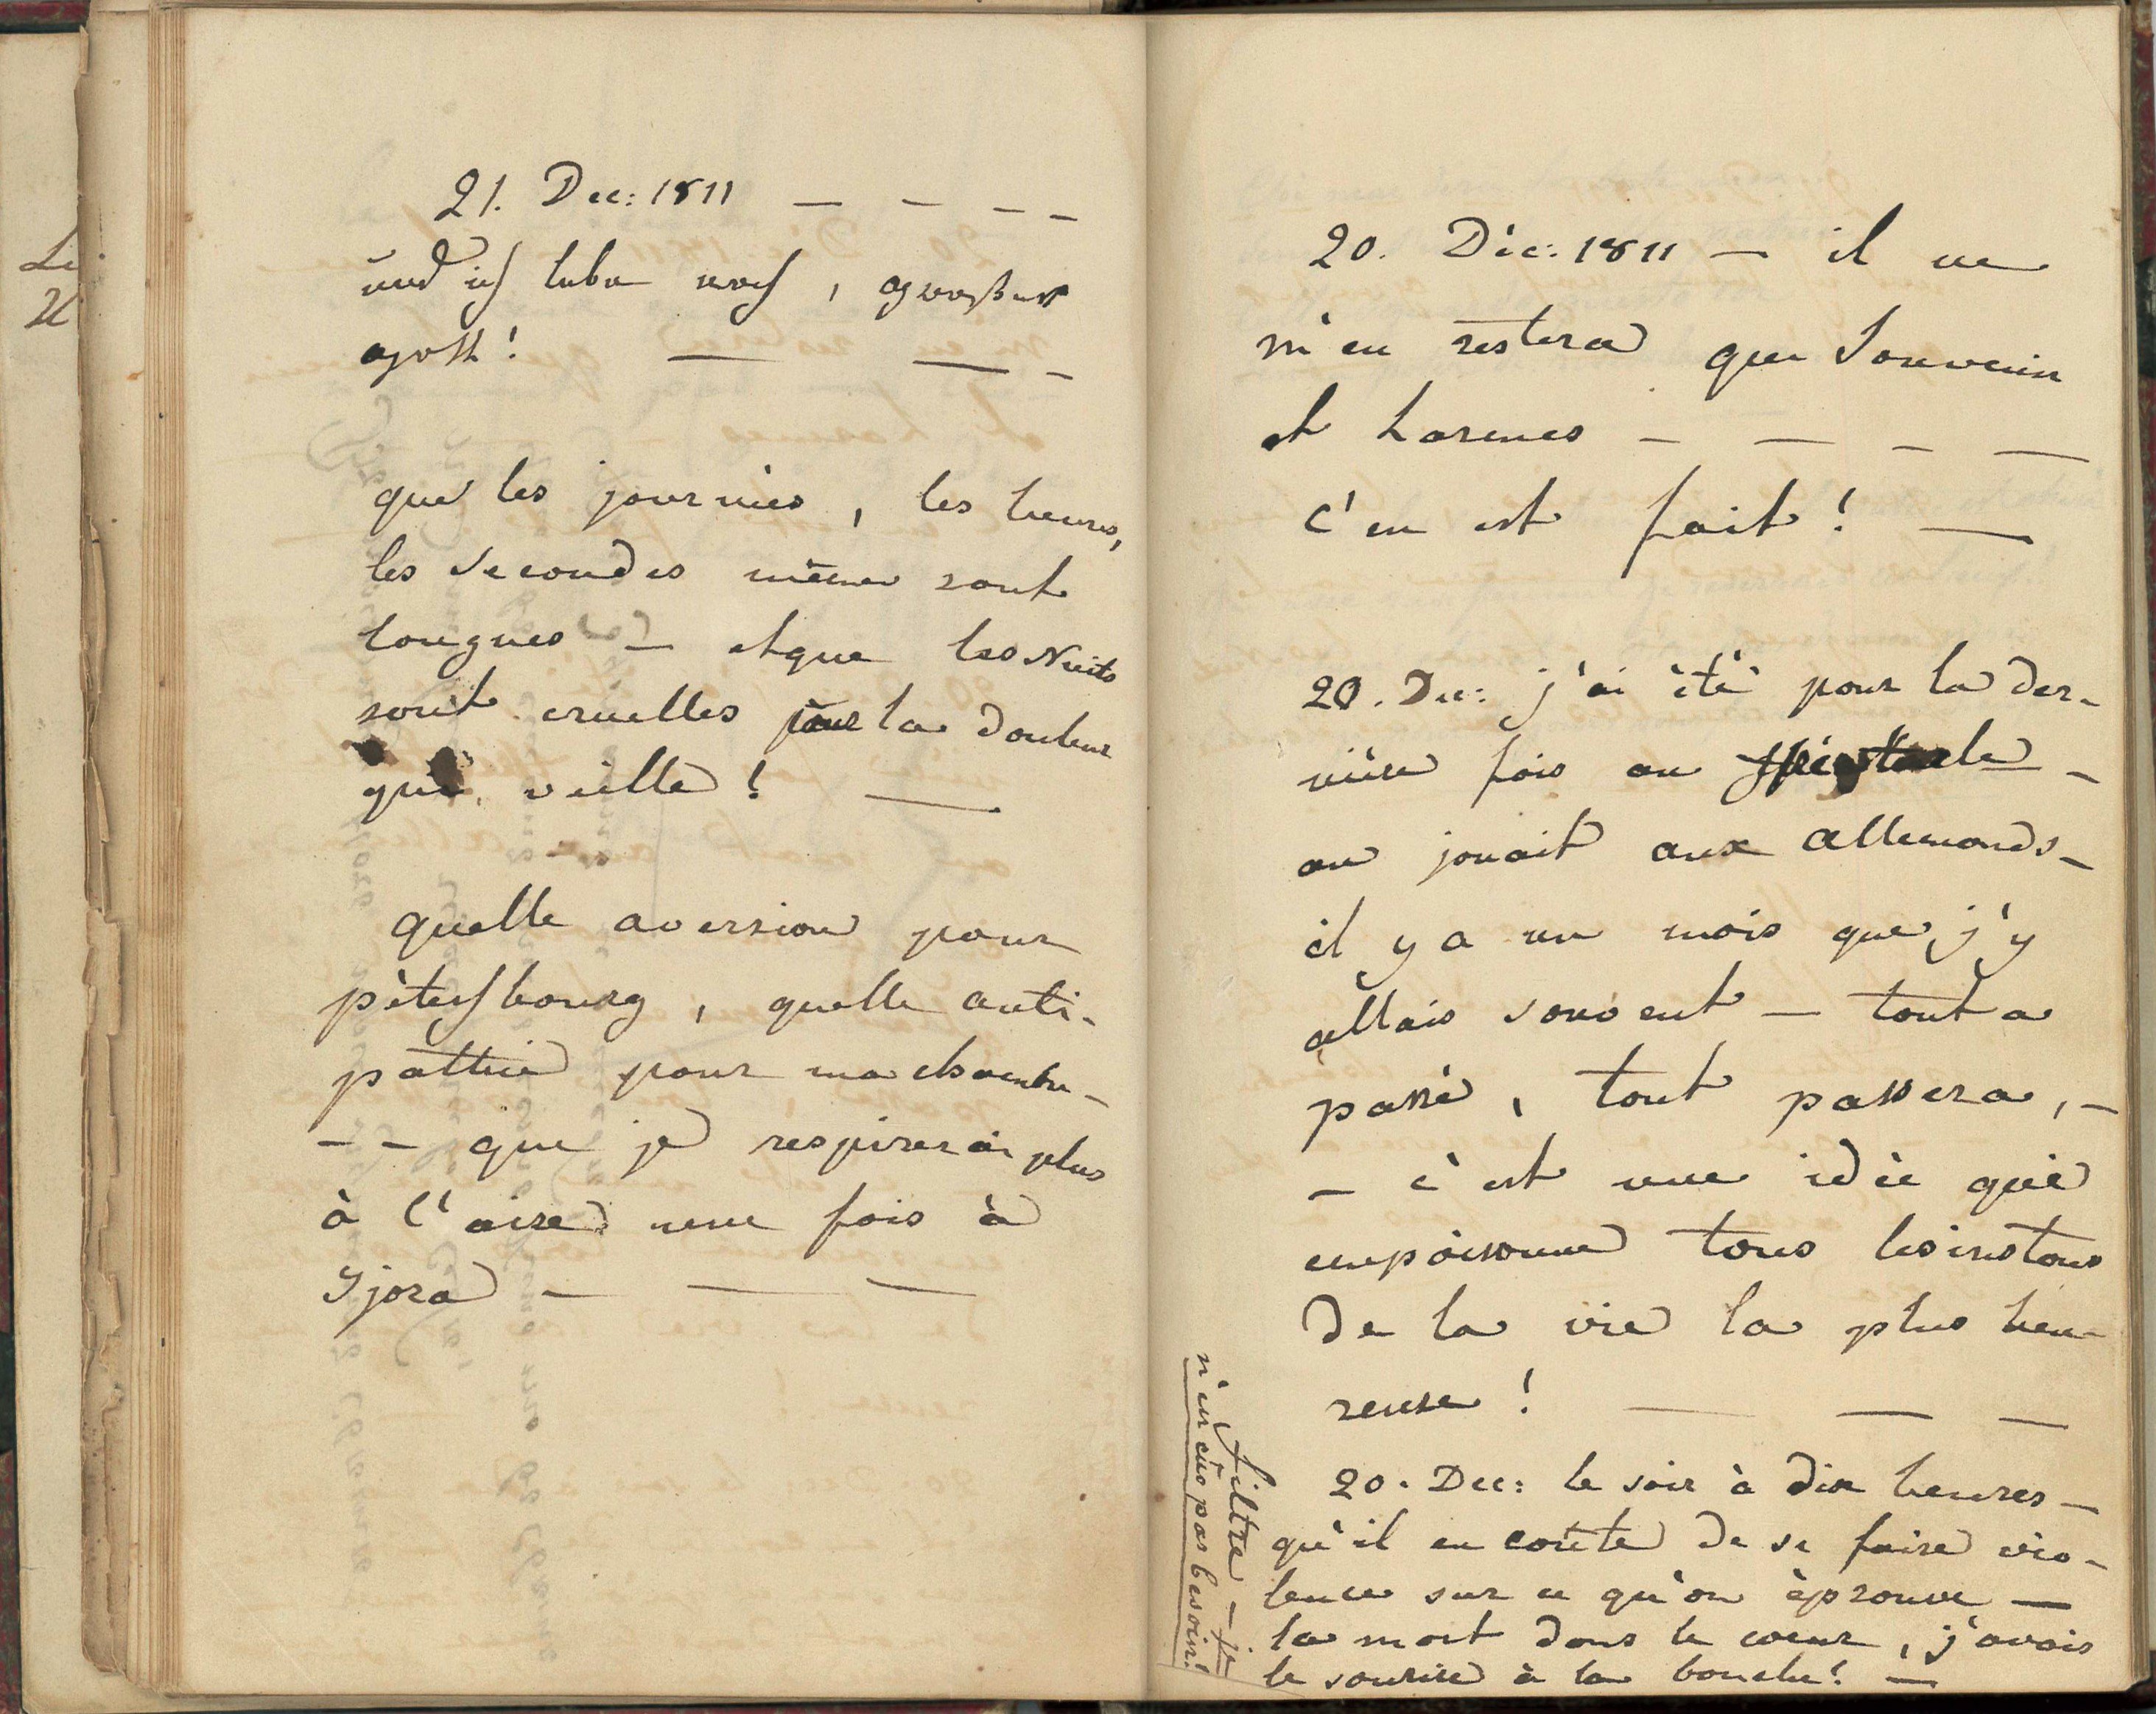 21. Dec: 1811 — — — —
und ich lebe noch, großer
gott! — — —
que les journées, les heures,
les secondes même sont
longues — et que les Nuits
sont cruelles pour la douleur
qui veille! —
quelle aversion pour
pètersbourg, quelle anti-
pathie pour ma chambre —
— — que je respirerai plus
à l'aise une fois à
Yjora — — —
20. Dèc: 1811 — il ne
m'en restera que Souvenir
et Larmes — — — —
c'en est fait! —
20. Dec: j'ai été pour la der-
nière fois au spectacle —
on jouait aux allemands —
il y a un mois que j'y
allais souvent — tout a
passé, tout passera, —
— c'est une idée qui
empoisonne tous les instans
de la vie la plus heu-
reuse! — — —
20. Dec: le soir à dix heures —
qu'il en coûte de se faire vio-
lence sur ce qu'on èprouve —
la mort dans le coeur, j'avais
le sourire à la bouche! —
filtre — je
n'en eûs pas besoin!
Le